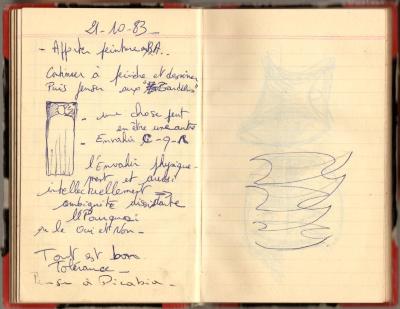 21-10-83-
- Apporter peinture
Continuer à peindre et dessiner
Puis penser aux "Gardelus"
- une chose peut
en être une autre
- Envahir
l'Envahir physique-
ment et aussi
intellectuellement →
ambiguité
le Pourquoi
ou le Oui et Non -
Tout est bon
Tolérance -
Pense à Picabia -